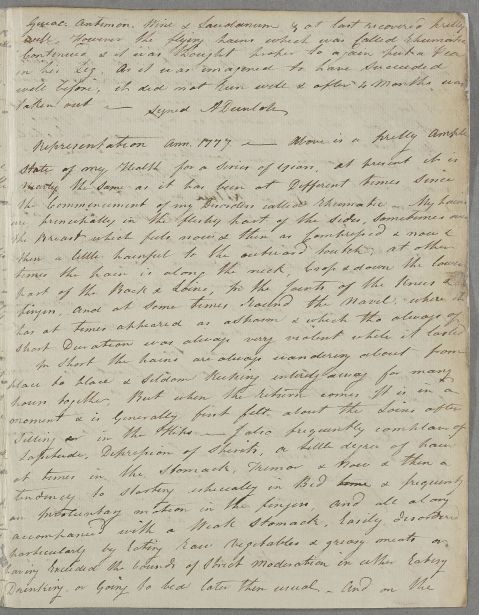 Guiac. Antimon. Wine & Laudanum & at last recovered pretty
well. However the flying pains which was called Rheumatic
Continued & it was thought proper to again put a Pea
in his Leg. As it was imagined to have Succeeded
well before, it did not run well & after 4 Months was
taken out — Signed ADunlop
Representation Ann. 1777 — Above is a pretty Ample
State of my Health for a Series of years, at present it is
nearly the Same as it has been at Different times Since
the Commencement of my Disorders called Rheumatic — My pains
are principally in the fleshy part of the Sides, Sometimes
the Breast which feels now & then as Compressed & now &
then a little painful to the outward touch, at other
times the pain is along the neck, up & down the lower
part of the Back & Loins, In the Joints of the Knees &
fingers, And at Some times around the Navel, where it
has at times appeared as a and which tho always of
Short Duration was always very violent while it lasted
In Short the pains are always wandering about from
place to place & Seldom Keeping entirely away for many
hours togethr, But when the return comes It is in a
moment & is Generally first felt about the Loins after
Sitting or in the Hips — I also frequently complain of
Lassitude, Depression of Spirits, a little degree of pain
at times in the Stomach, Tremor & Now & then a
tendency to Starting especially in Bed & frequently
an Involuntary motion in the fingers And all along
accompanied with a Weak Stomach, Easily disordered
particularly by Eating Raw Vegetables & greasy meats or
having Exceeded the bounds of Strict Moderation in either Eating
Drinking, or Going to bed later then usual — And on the